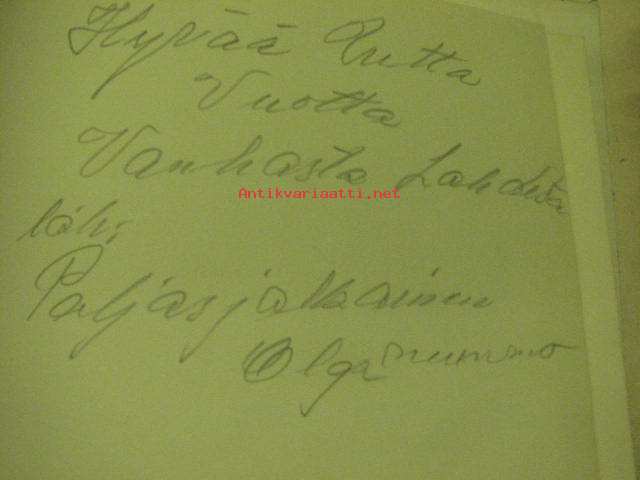 Hyvää Uutta
Vuotta
Vanhasta Lahdesta
Antikvariaatti.net
läh:
Paljasjalkainen
Olga mummo